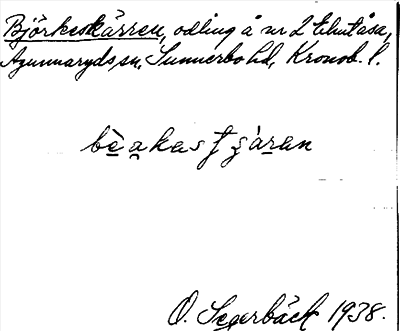 Björkeskärren, odling å nr 2 Elmtåsa,
Agunnaryds sn, Sunnerbo hd, Kronob. l.
O. Segerbäck 1938.